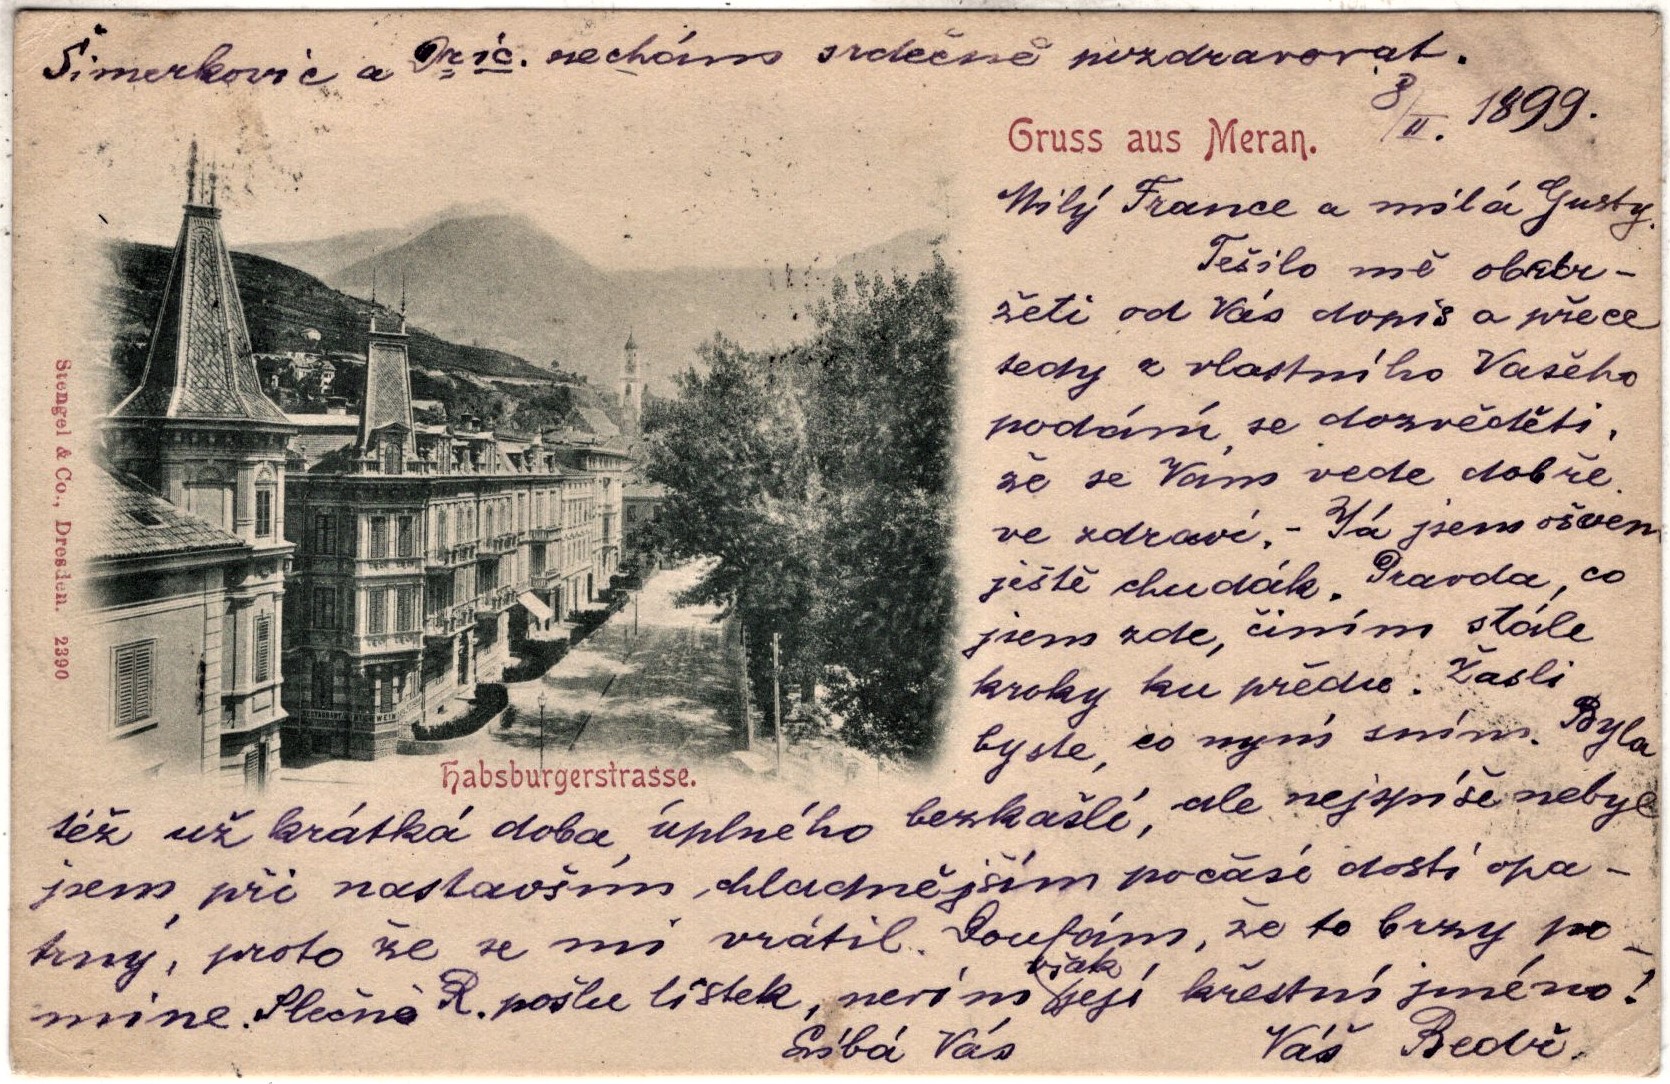 Šimerkovic a Dr ić. nechám srdečně pozdravovat.
8/II. 1899.
Gruss aus Meran.
Milý France a milá Gusty.
Těšilo mě obdr-
žeti od Vás dopis a přece
tedy z vlastního Vašého
podání se dozvěděti,
že se Vám vede dobře
ve zdraví. - Já jsem ošem
ještě chudák. Pravda, co
jsem zde, činím stále
kroky ku předu. Žasli
byste, co nyní sním. Byla
též už krátká doba úplného bezkašlí, ale nejspíše nebyl
jsem při nastavším chladnějším počasí dosti opa-
trný, proto že se mi vrátil. Doufám, že to brzy po-
mine. Slečně R. pošlu lístek, nevím však její křestní jméno!
Líbá Vás Váš Bedř.
Habsburgerstrasse.
Stengel & Co., Dresden. 2390
RESTAURANT WEIN